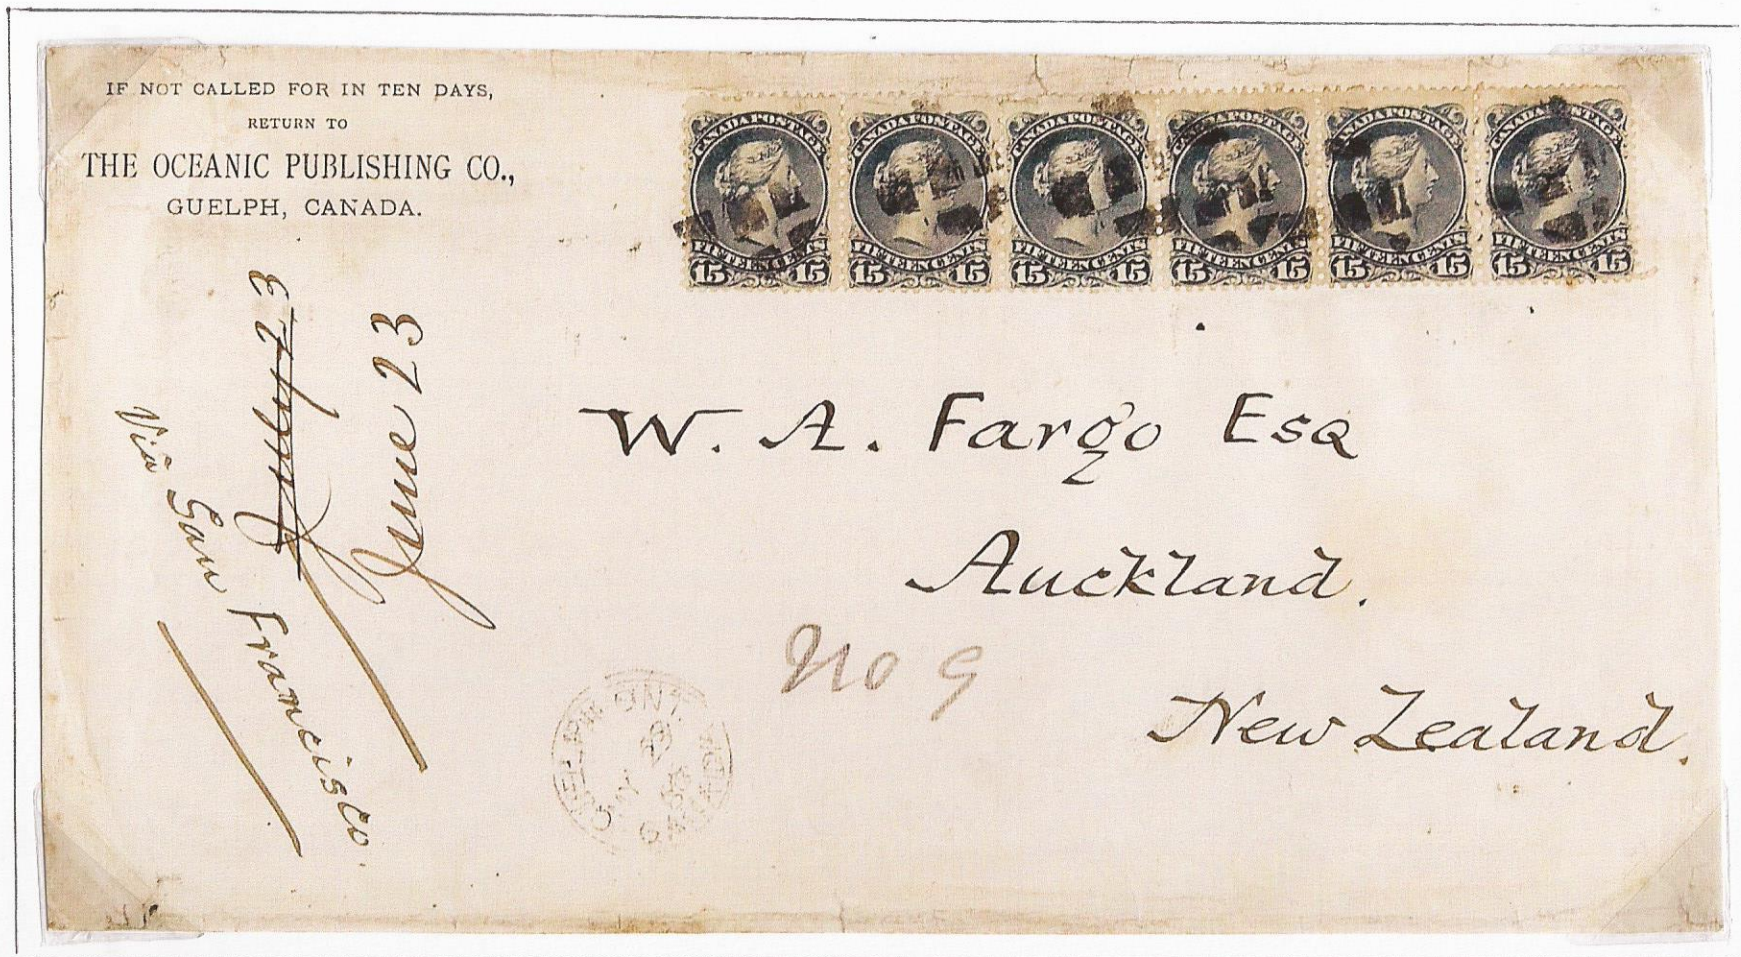 IF NOT CALLED FOR IN TEN DAYS,
RETURN TO
THE OCEANIC PUBLISHING CO.,
GUELPH, CANADA.
CANADA POSTAGE
FIFTEEN CENTS
15 15
CANADA POSTAGE
FIFTEEN CENTS
15 15
CANADA POSTAGE
FIFTEEN CENTS
15 15
CANADA POSTAGE
FIFTEEN CENTS
15 15
CANADA POSTAGE
FIFTEEN CENTS
15 15
CANADA POSTAGE
FIFTEEN CENTS
15 15
Via San Francisco.
July 23
June 23
W. A. Fargo Esq
Auckland.
New Zealand.
No 9
GUELPH ONT